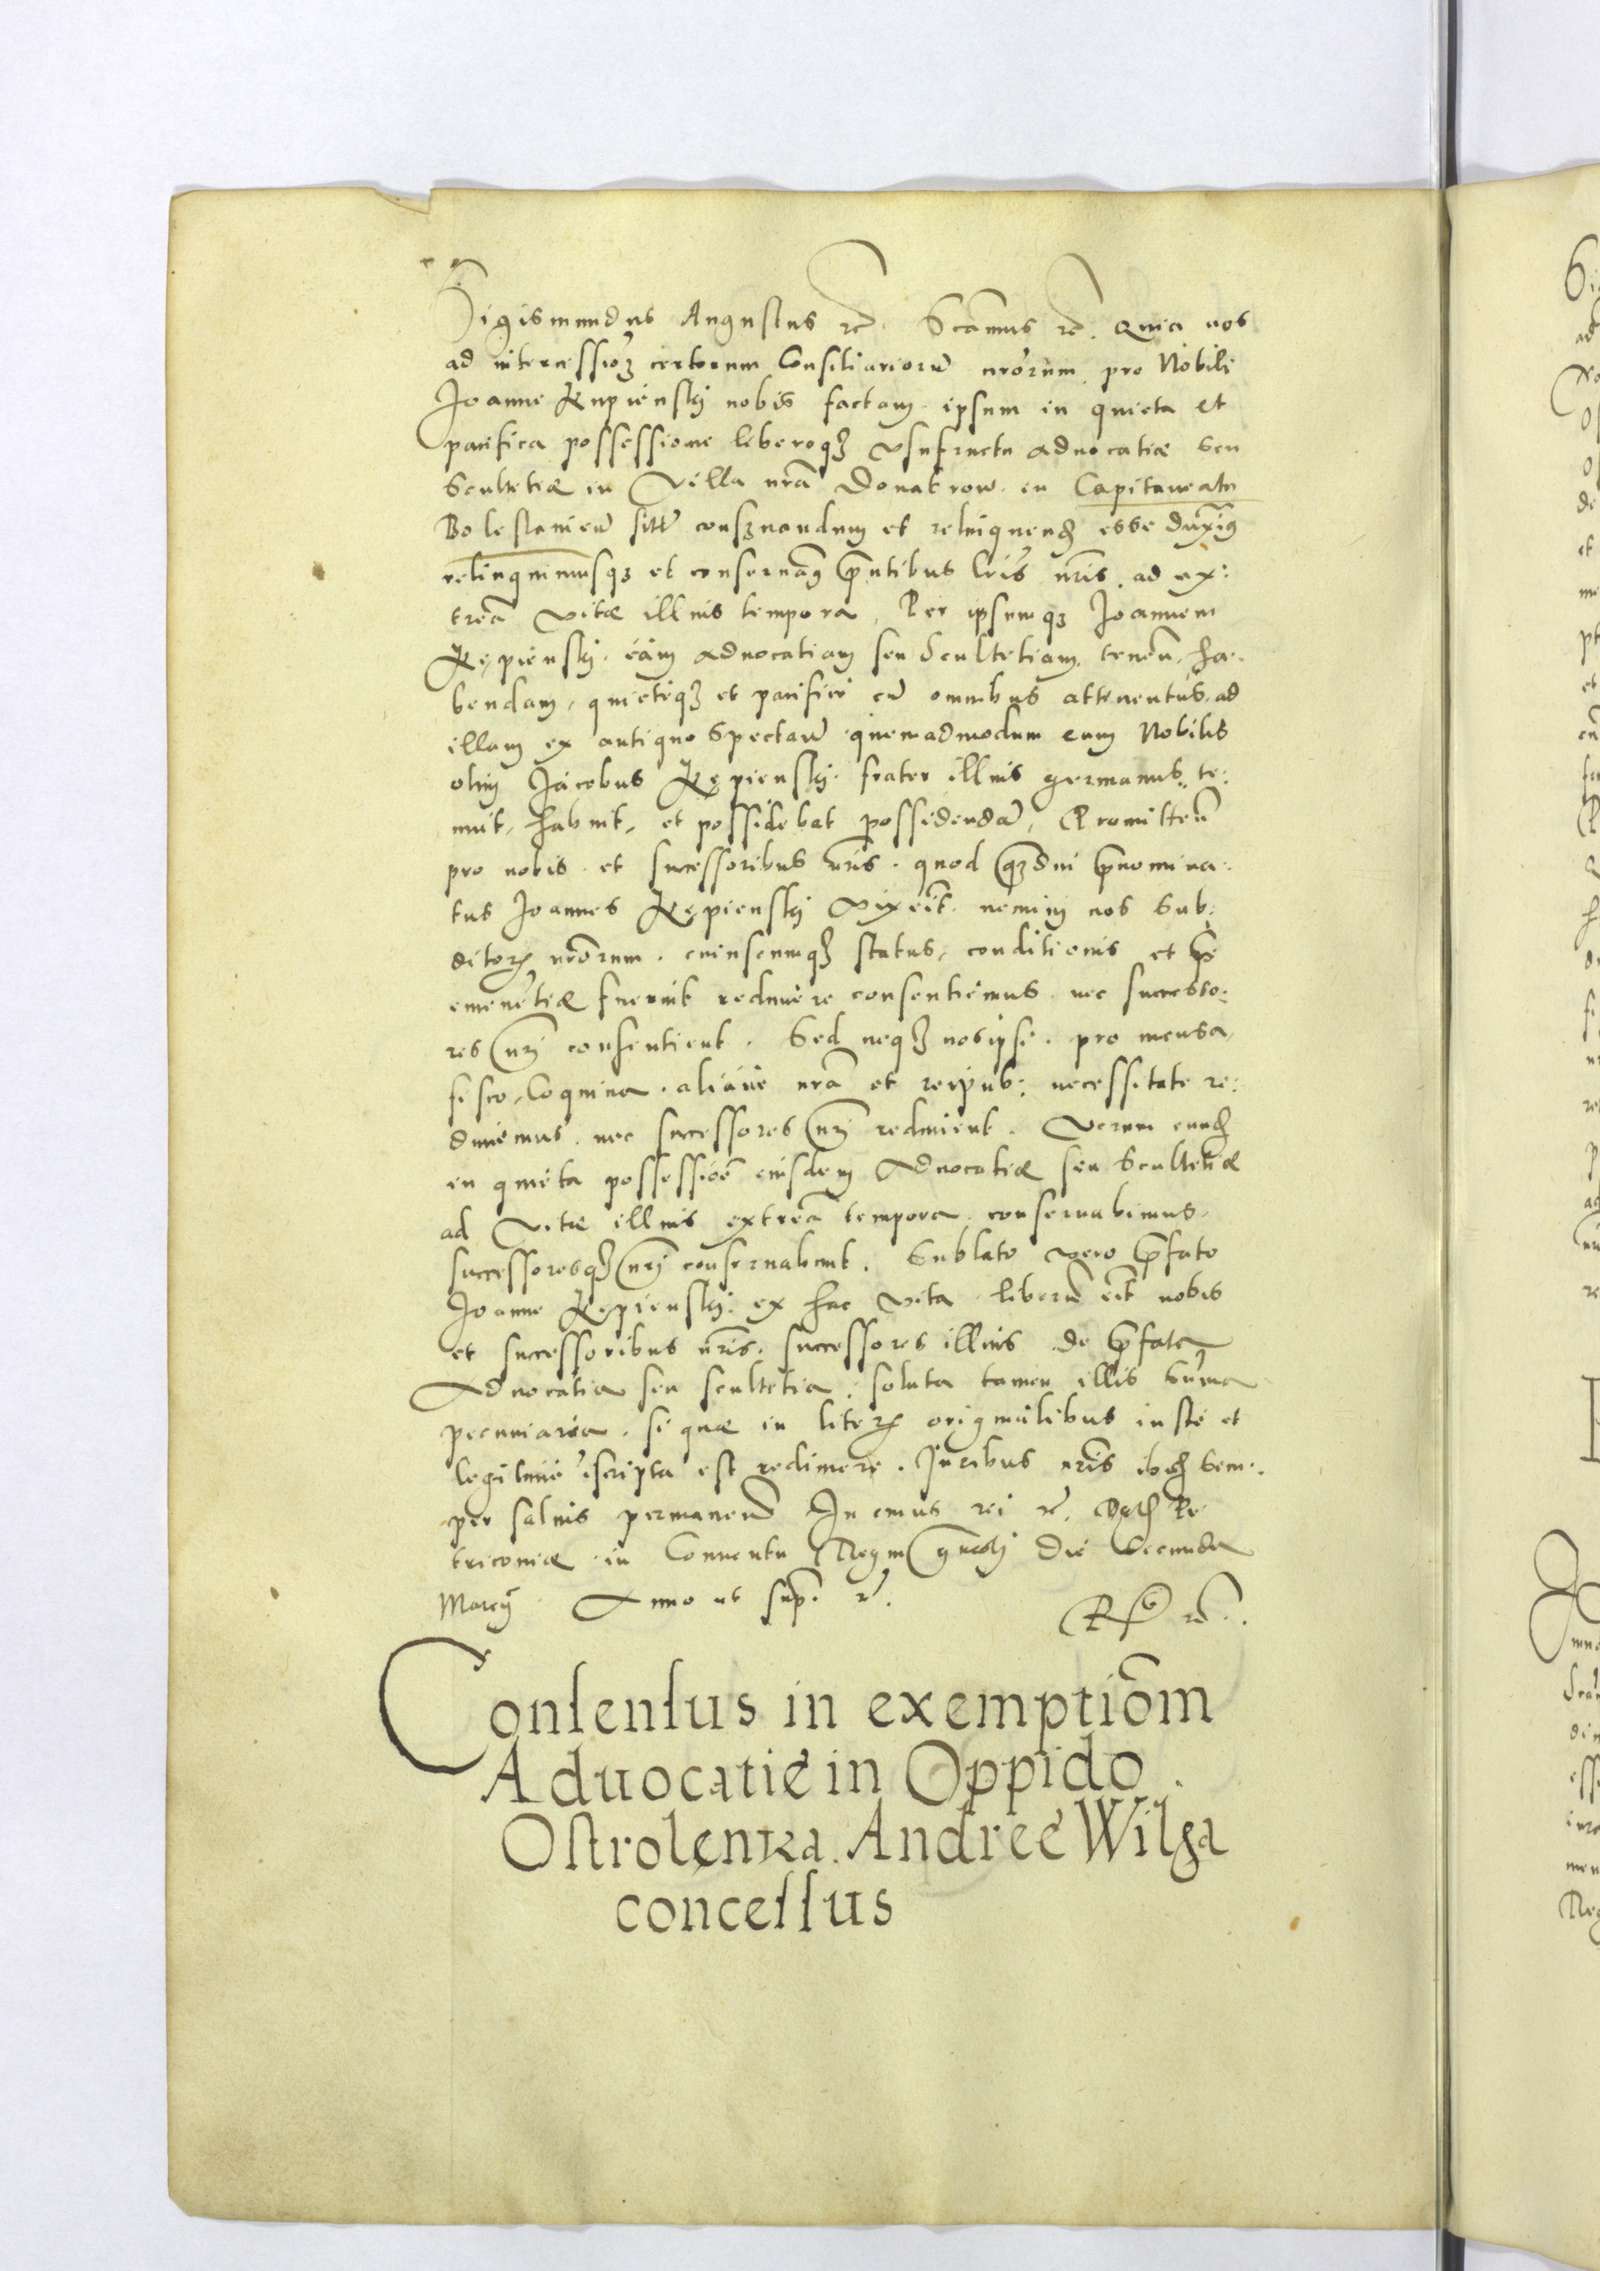 Sigismundus Augustus rc. Scamus rc. Quia nos
ad intercessioz certorum Consiliariorū nrorum pro Nobili
Joanne Rupienskj nobis factam ipsum in quieta et
pacifica possessione liberoqz vsufructu aduocatiæ seu
Scultetiæ in Villa nrā Donatrow in Capitaneatu
Boleslauieñ sitt consernandum et relinquend esse duximg
relinquimusqz et consernamg pntibus lris nris ad ex:
trea vitæ illius tempora, Per ipsumqz Joannem
Rępienskj eam aduocatiam seu Scultetiam tenen, ha.
bendam, quieteqz et pacifice cū omnibus attinentijs ad
illam ex antiquo spectañ quemadmodum eum Nobilis
olim Jacobus Rępienskj frater illius germanus te:
nuit, habuit, et possidebat possidendā, Promitteñ
pro nobis et successoribus nris. quod qzdiu pnomina.
tus Joannes Rępienskj vixerit nemini nos sub:
ditorz nrorum. cuiuscumqz status, conditionis et
emenetiæ fuerint redimere consentiemus nec successo:
res nrj consentient. Sed neqz nosipsi pro mensa
fisco, Coquina aliaue nrā et reipub: necessitate re:
dimemus nec successores nrj redimient. Verum eund
in quieta possessioē eiusdem Aduocatiæ seu Scultetiæ
ad vitæ illius extrea tempora conseruabimus
successoresqz nrj consernabunt. Sublato vero pfato
Joanne Rępienskj ex hac vita liberū erit nobis
et successoribus nris. successores illius de pfata
Aduocatia seu scultetia, soluta tamen illis summa
pecuniaria. si quæ in literz originalibus iuste et
legitime iscripta est redimere. Juribus nris ibid sem:
per saluis permaneñ In cuius rei rc. Dat Pe
triconiæ in Conuentu Regni gnalj Die Secunda
Marcij Anno ut sup. rc.
Rſo rc.
Consensus in exemptiōm
Aduocatię in Oppido
Ostrolęnka Andreę Wilga
concessus